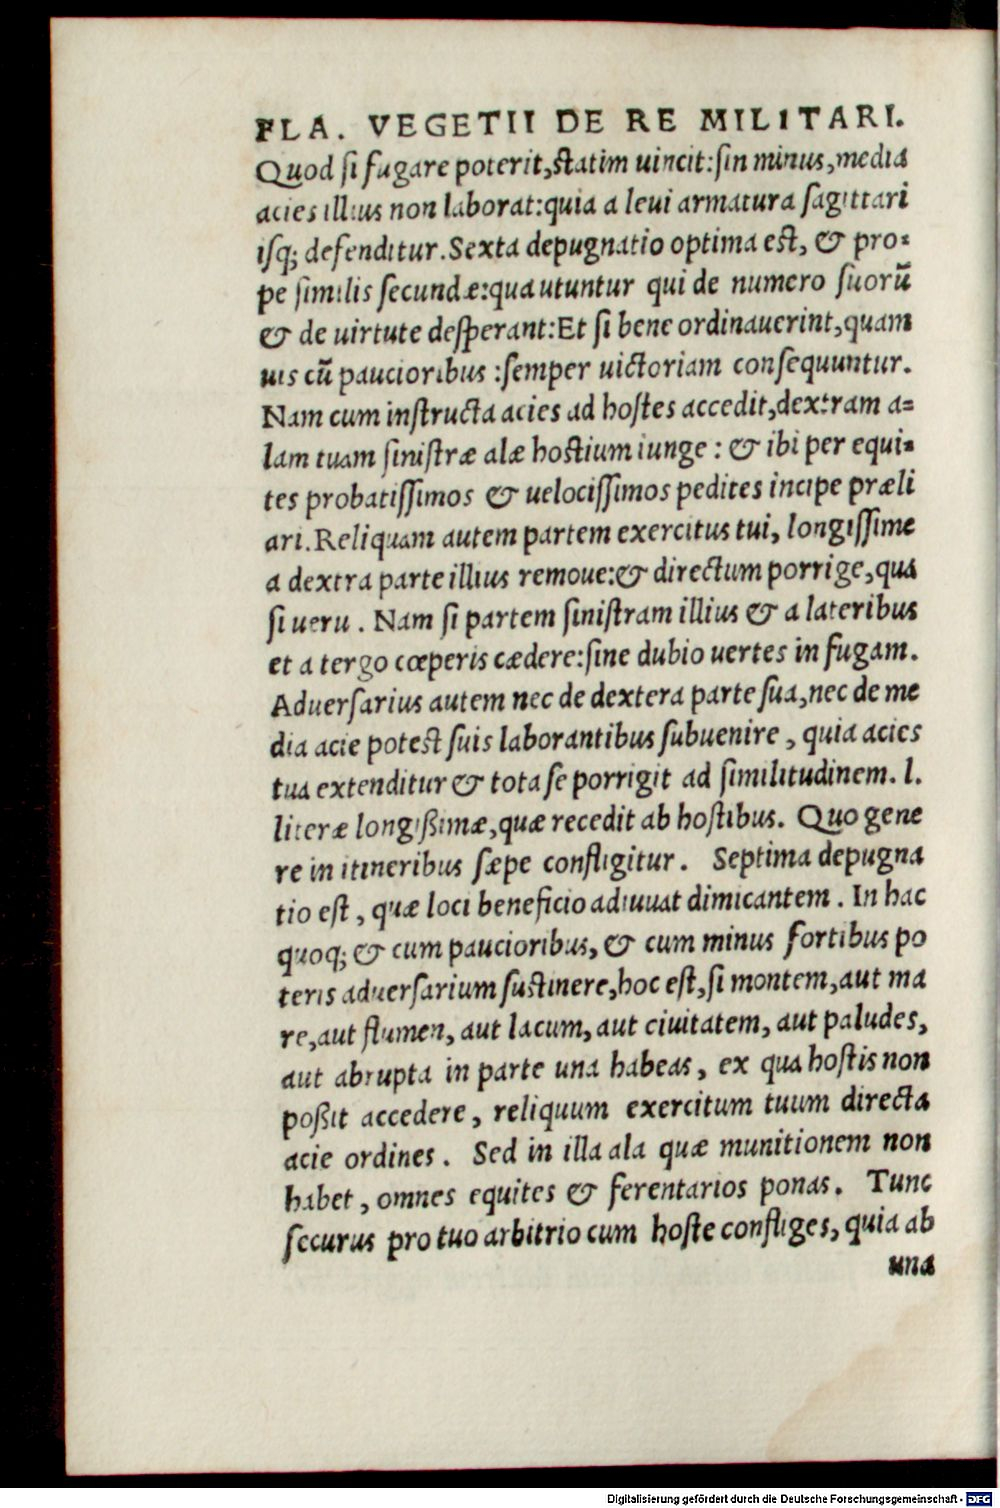 FLA. VEGETII DE RE MILITARI.
Quod si fugare poterit, statim uincit: sin minus, media
acies illius non laborat: quia a leui armatura sagittari
isq; defenditur. Sexta depugnatio optima est, & pro-
pe similis secundæ: qua utuntur qui de numero suorū
& de uirtute desperant: Et si bene ordinauerint, quam
uis cū paucioribus : semper uictoriam consequuntur.
Nam cum instructa acies ad hostes accedit, dextram a=
lam tuam sinistræ alæ hostium iunge : & ibi per equi-
tes probatissimos & uelocissimos pedites incipe præli
ari. Reliquam autem partem exercitus tui, longissime
a dextra parte illius remoue: & directum porrige, qua
si ueru . Nam si partem sinistram illius & a lateribus
et a tergo cœperis cædere: sine dubio uertes in fugam.
Aduersarius autem nec de dextera parte sua, nec de me
dia acie potest suis laborantibus subuenire , quia acies
tua extenditur & tota se porrigit ad similitudinem. l.
literæ longißimæ, quæ recedit ab hostibus. Quo gene
re in itineribus sæpe confligitur . Septima depugna
tio est , quæ loci beneficio adiuuat dimicantem . In hac
quoq; & cum paucioribus, & cum minus fortibus po
teris aduersarium sustinere, hoc est, si montem, aut ma
re, aut flumen, aut lacum, aut ciuitatem, aut paludes,
aut abrupta in parte una habeas , ex qua hostis non
poßit accedere , reliquum exercitum tuum directa
acie ordines . Sed in illa ala quæ munitionem non
habet , omnes equites & ferentarios ponas . Tunc
securus pro tuo arbitrio cum hoste confliges, quia ab
una
Digitalisierung gefördert durch die Deutsche Forschungsgemeinschaft - DFG